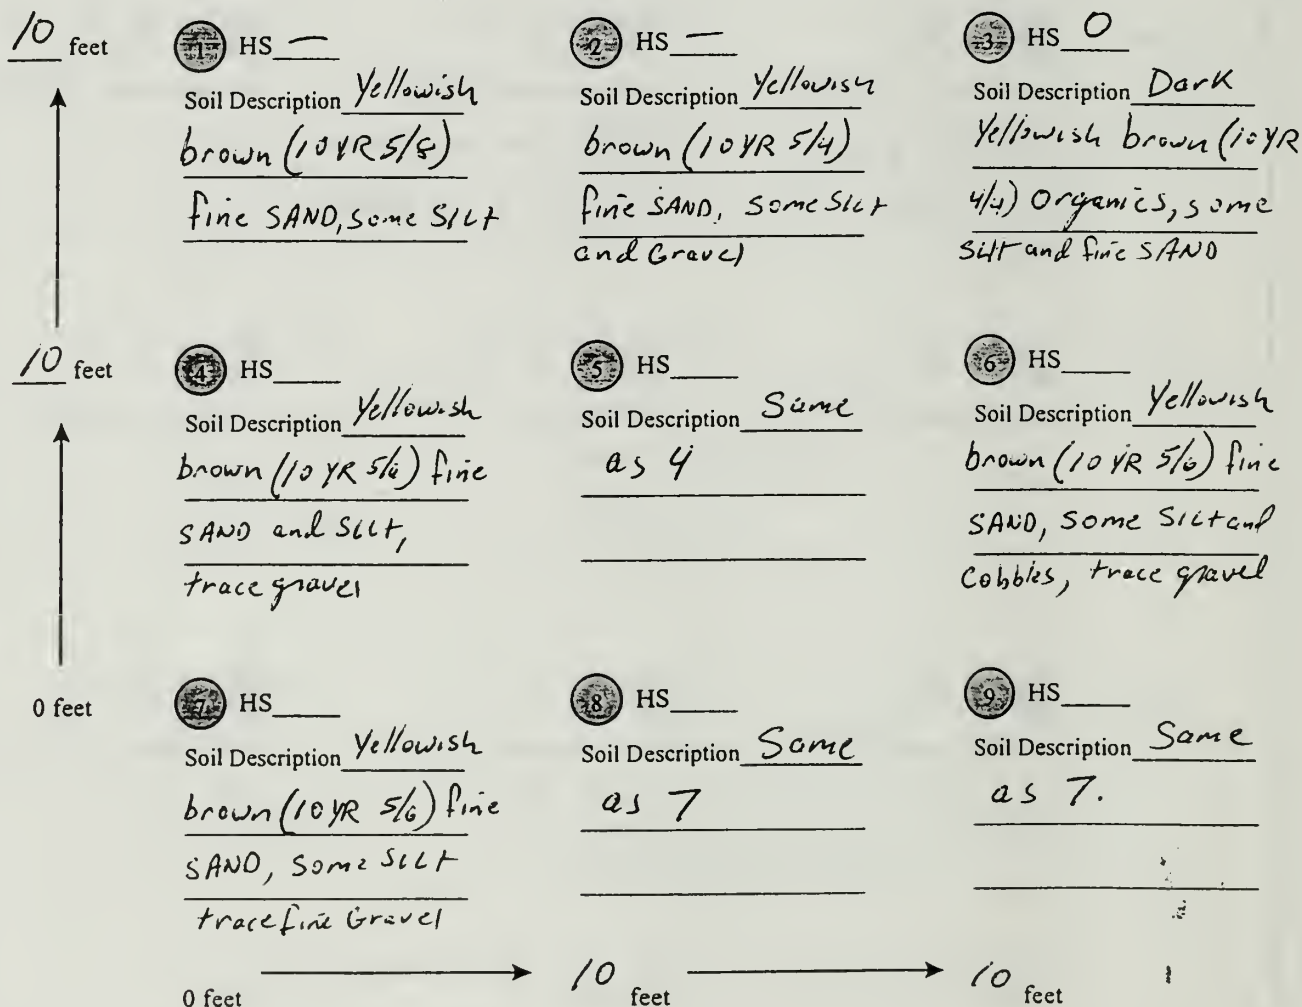 10 feet
1 HS —
Soil Description Yellowish
brown (10 YR 5/8)
fine SAND, some SILT
2 HS —
Soil Description Yellowish
brown (10 YR 5/4)
fine SAND, some SILT
and Gravel
3 HS 0
Soil Description Dark
Yellowish brown (10 YR
4/4) Organics, some
SILT and fine SAND
10 feet
4 HS
Soil Description Yellowish
brown (10 YR 5/6) fine
SAND and SILT,
trace gravel
5 HS
Soil Description Same
as 4
6 HS
Soil Description Yellowish
brown (10 YR 5/6) fine
SAND, some SILT and
Cobbles, trace gravel
0 feet
7 HS
Soil Description Yellowish
brown (10 YR 5/6) fine
SAND, some SILT
trace fine Gravel
8 HS
Soil Description Same
as 7
9 HS
Soil Description Same
as 7.
0 feet
10 feet
10 feet